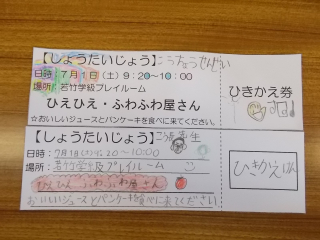 【しょうたいじょう】こうちょうせんせい
日時：7月1日（土）9：20～10：00
場所：若竹学級プレイルーム
ひえひえ・ふわふわ屋さん
☆おいしいジュースとパンケーキを食べに来てください。
ひきかえ券
【しょうたいじょう】
日時：7月1日(土)9:20～10:00
場所：若竹学級プレイルーム
ひえひえ ふわふわ屋さん
おいしいジュースとパンケーキを食べに来てください
ひきかえけん